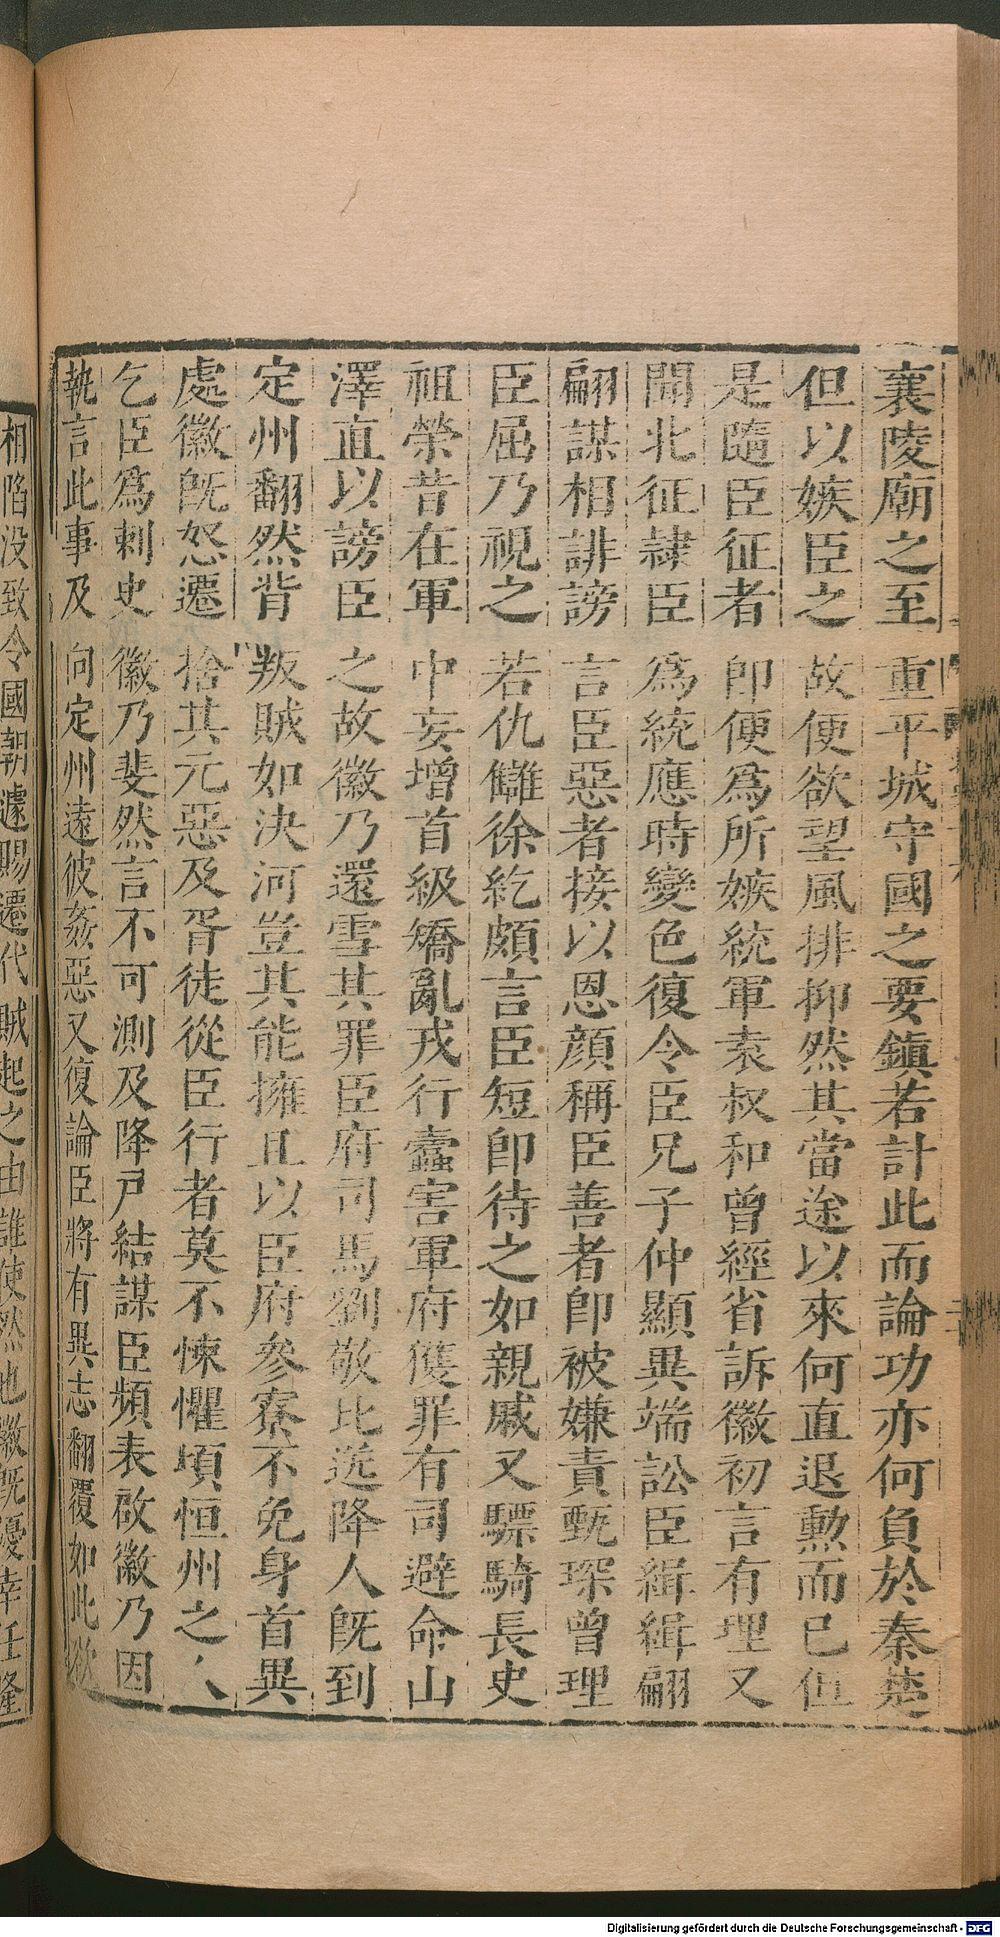 襄陵廟之至重平城守國之要鎮若計此而論功亦何負於秦楚
但以嫉臣之故便欲望風排抑然其當途以來何直退勲而已但
是隨臣征者卽便爲所嫉統軍袁叔和曾經省訴徽初言有理又
聞北征隷臣爲統應時變色復令臣兄子仲顯異端訟臣緝緝翩
翩謀相誹謗言臣惡者接以恩顔稱臣善者卽被嫌責甄琛曾理
臣屈乃視之若仇讎徐紇頗言臣短卽待之如親戚又驃騎長史
祖榮昔在軍中妄增首級矯亂戎行蠹害軍府獲罪有司避命山
澤直以謗臣之故徽乃還雪其罪臣府司馬劉敬比送降人旣到
定州翻然背叛賊如決河豈其能擁且以臣府參寮不免身首異
處徽旣怒遷捨其元惡及胥徒從臣行者莫不悚懼頃恒州之人
乞臣爲刺史徽乃斐然言不可測及降戸結謀臣頻表啟徽乃因
執言此事及向定州遠彼姦惡又復論臣將有異志翻覆如此欲
相陷没致令國朝遽賜遷代賊起之由誰使然也徽旣優幸任隆
Digitalisierung gefördert durch die Deutsche Forschungsgemeinschaft - DFG